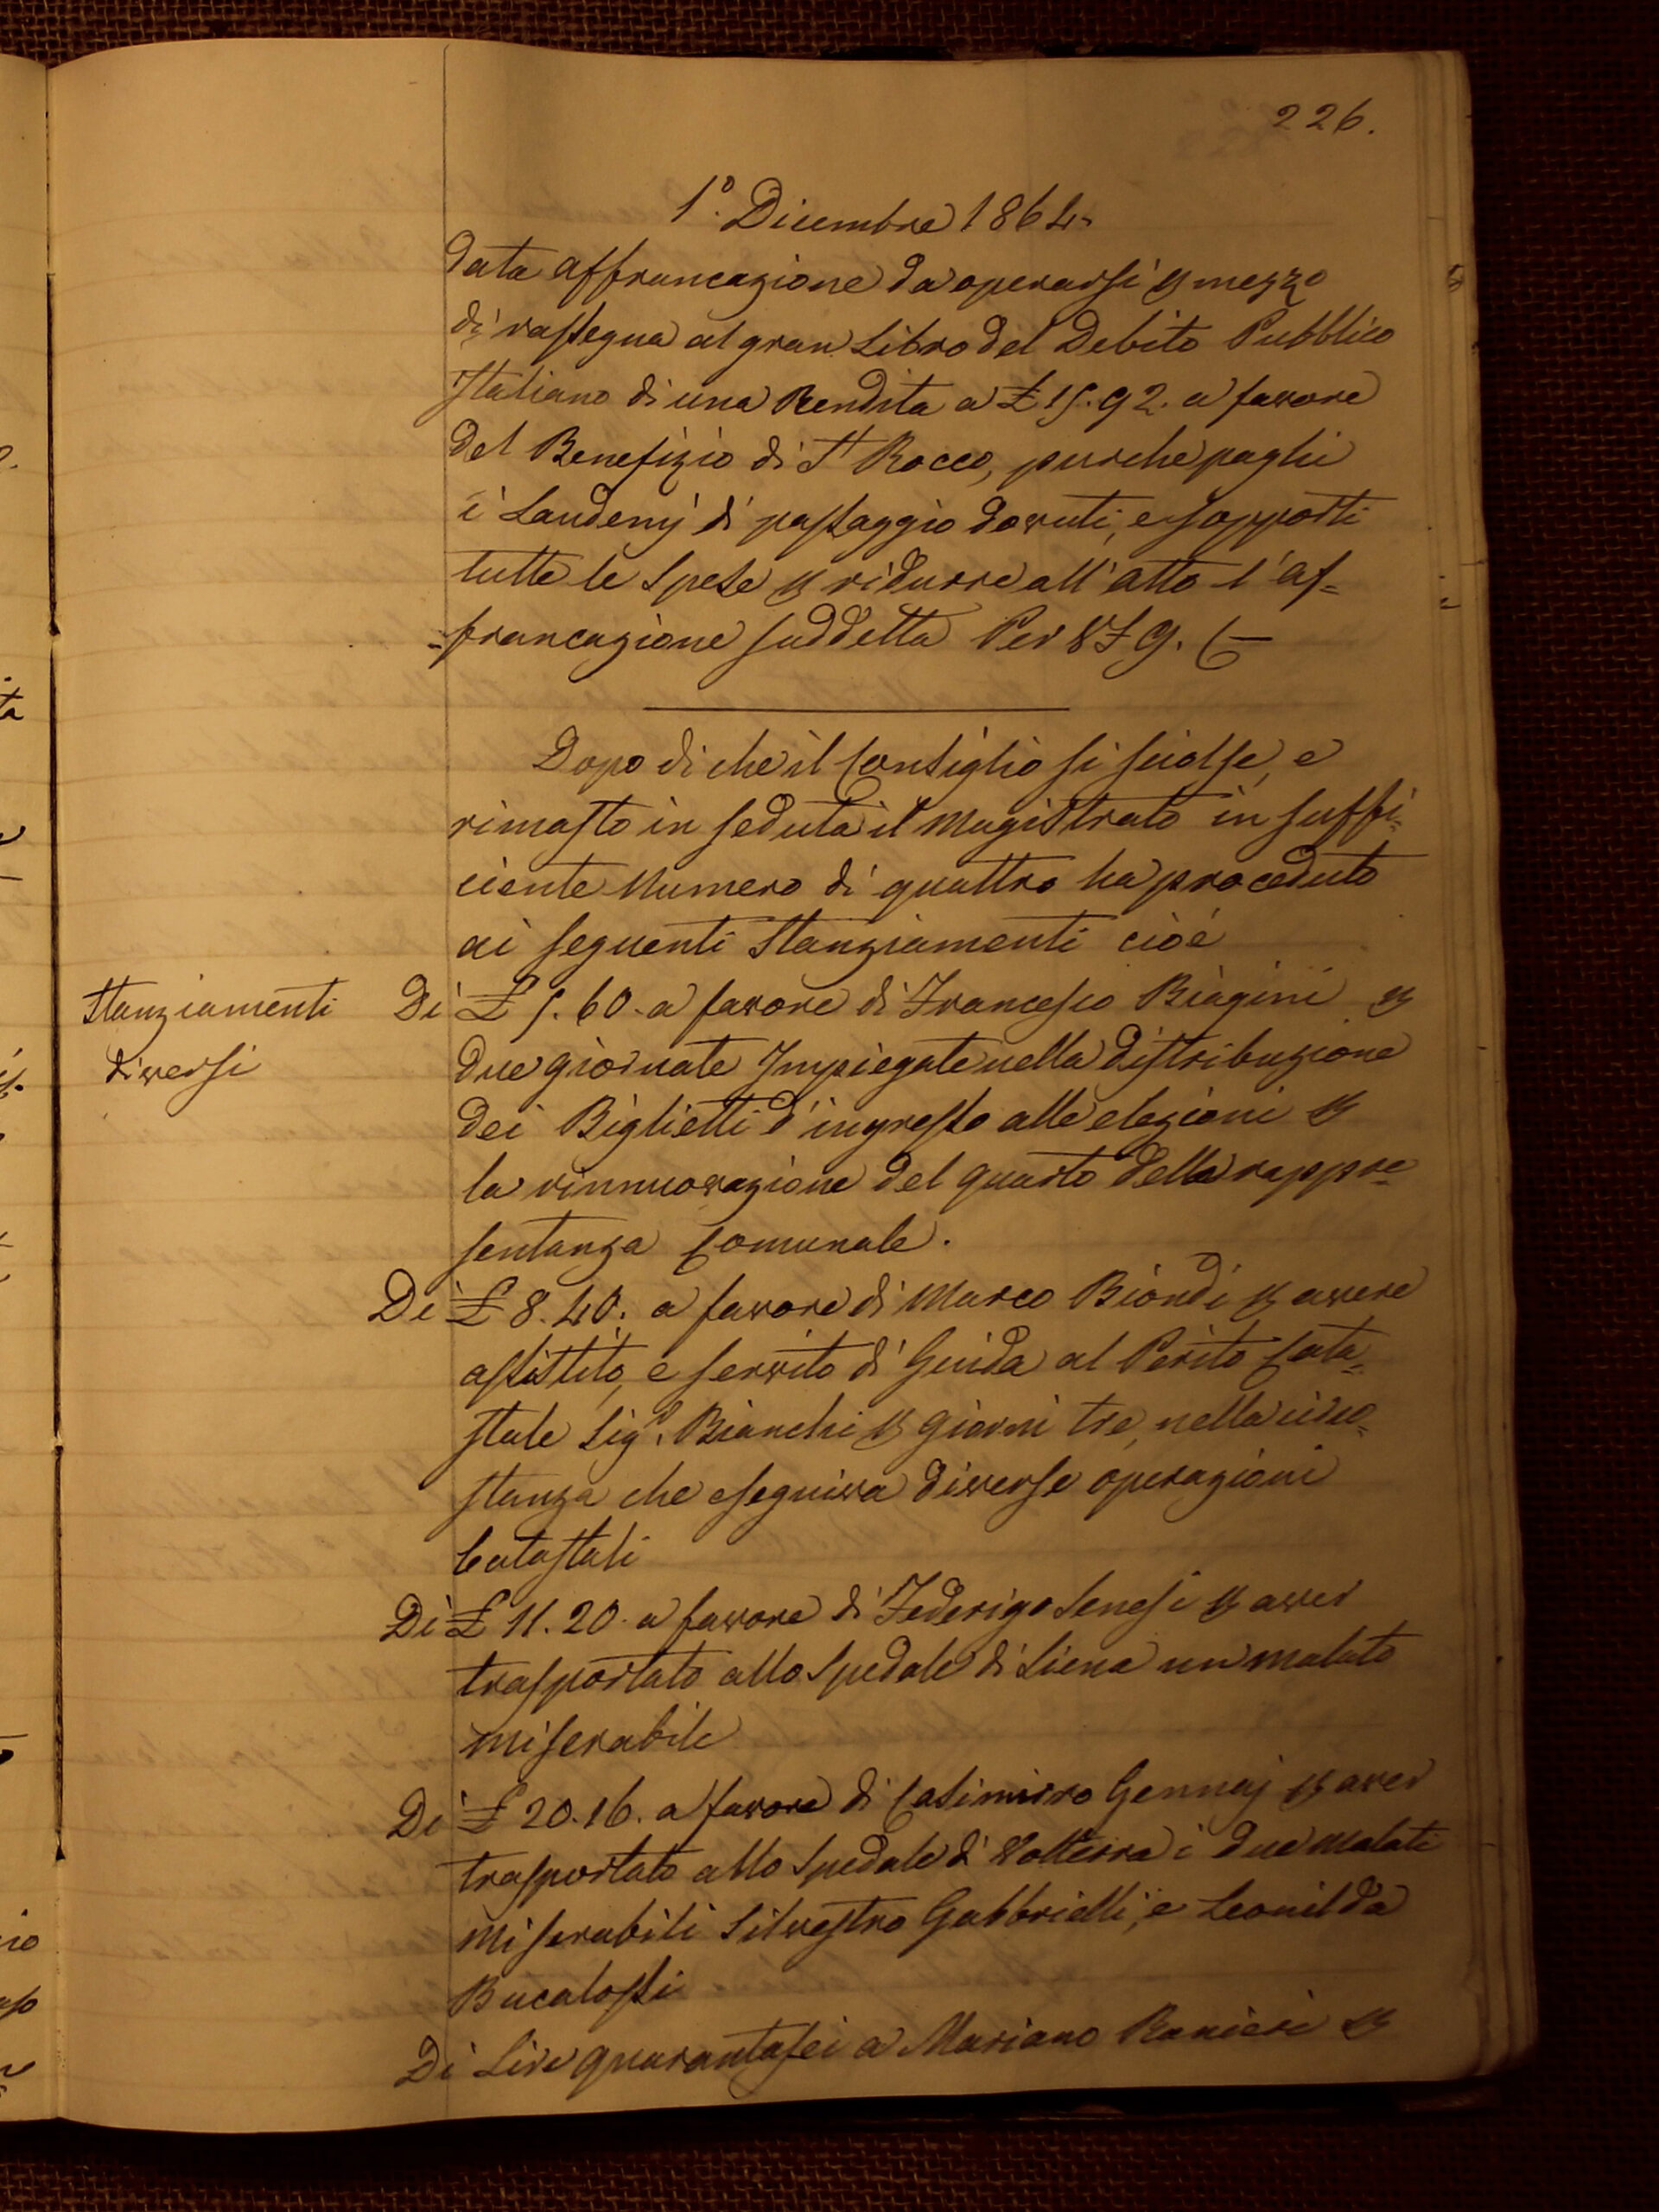 226.
1º. Dicembre 1864.
data affrancazione da operarsi p mezzo
di rassegna al gran Libro del Debito Pubblico
Italiano di una Rendita a £ 15.92. a favore
del Benefizio di Sᵗ Rocco, purche paghi
i Laudemj di passaggio dovuti, e sopporti
tutte le Spese p ridurre all'atto l'af=
=francazione suddetta Per 8 F 9. C
Dopo di che il Consiglio si sciolse, e
rimasto in seduta il Magistrato in suffi=
ciente Numero di quattro ha proceduto
ai seguenti Stanziamenti cioé
Stanziamenti
diversi
Di £ 5.60. a favore di Francesco Biagini p
due giornate Impiegate nella distribuzione
dei Biglietti d'ingresso alle elezioni p
la rinnuovazione del quarto della rappre=
sentanza Comunale.
Di £ 8.40. a favore di Marco Biondi p avere
assistito, e servito di Guida al Perito Cata=
stale Sigʳ. Bianchi p giorni tre, nella circo=
stanza che eseguiva diverse operazioni
Catastali
Di £ 11.20. a favore di Federigo Senesi p aver
trasportato allo Spedale di Siena un malato
miserabile
Di £ 20.16. a favore di Casimirro Gennaj p aver
trasportato allo Spedale di Volterra i due malati
miserabili Silvestro Gabbrielli, e Leonilda
Bucalossi
Di Lire quarantasei a Mariano Ranieri p